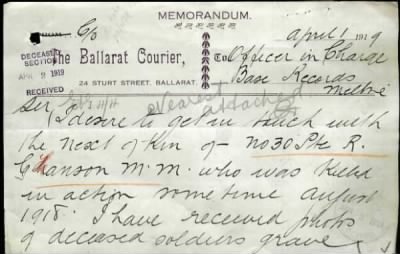 MEMORANDUM.
C/o
April 1 1919
DECEASED
SECTION
APR 2 1919
RECEIVED
The Ballarat Courier,
24 STURT STREET, BALLARAT
To Officer in Charge
Base Records
Melbne
Sir
Nearest
attached
I desire to get in touch with
the Next of Kin of No 30 Pte R.
Hanson M.M. who was killed
in action some time August
1918. I have received photos
of deceased soldiers grave